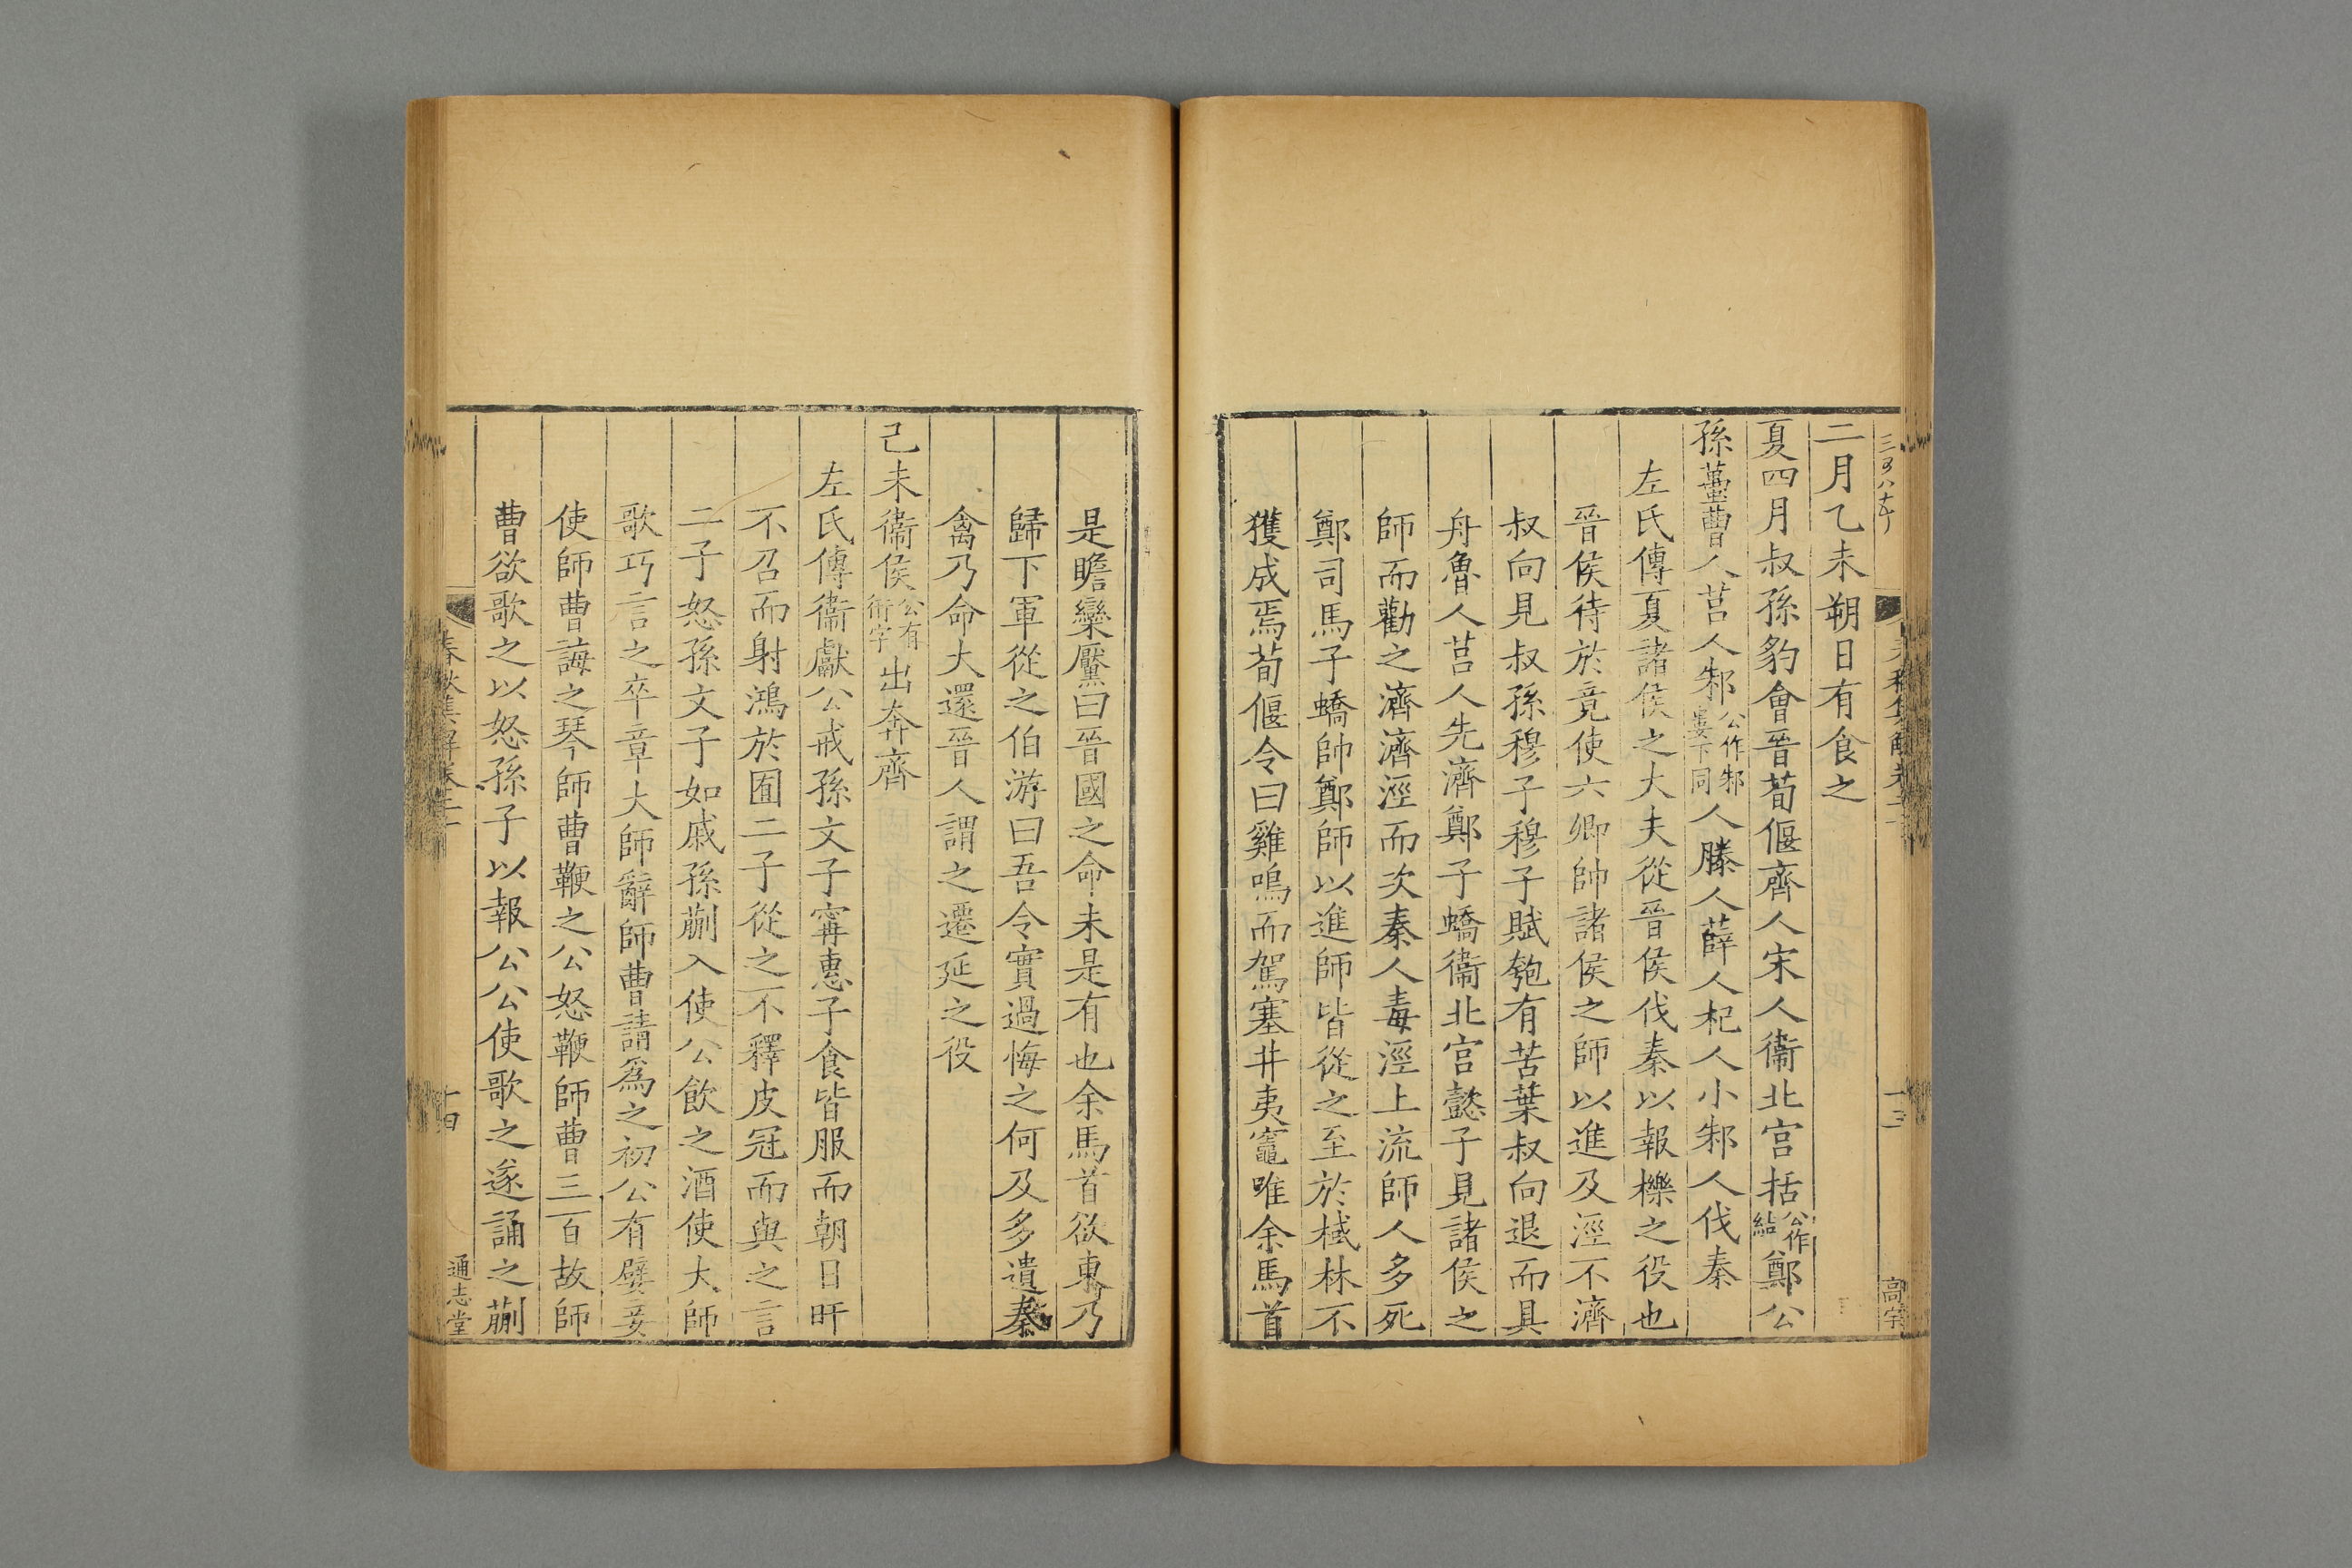 二月乙未朔日有食之
夏四月叔孫豹會晉荀偃齊人宋人衞北宫括公作結鄭公
孫蠆曹人莒人邾公作邾婁下同人滕人薛人杞人小邾人伐秦
左氏傳夏諸侯之大夫從晉侯伐秦以報櫟之役也
晉侯待於竟使六卿帥諸侯之師以進及涇不濟
叔向見叔孫穆子穆子賦匏有苦葉叔向退而具
舟魯人莒人先濟鄭子蟜衞北宫懿子見諸侯之
師而勸之濟濟涇而次秦人毒涇上流師人多死
鄭司馬子蟜帥鄭師以進師皆從之至於棫林不
獲成焉荀偃令曰雞鳴而駕塞井夷竈唯余馬首
是瞻欒黶曰晉國之命未是有也余馬首欲東乃
歸下軍從之伯游曰吾令實過悔之何及多遺秦
禽乃命大還晉人謂之遷延之役
己未衞侯公有衎字出奔齊
左氏傳衞獻公戒孫文子甯惠子食皆服而朝日旰
不召而射鴻於囿二子從之不釋皮冠而與之言
二子怒孫文子如戚孫蒯入使公飲之酒使大師
歌巧言之卒章大師辭師曹請爲之初公有嬖妾
使師曹誨之琴師曹鞭之公怒鞭師曹三百故師
曹欲歌之以怒孫子以報公公使歌之遂誦之蒯
春秋集解卷二十
十四
通志堂